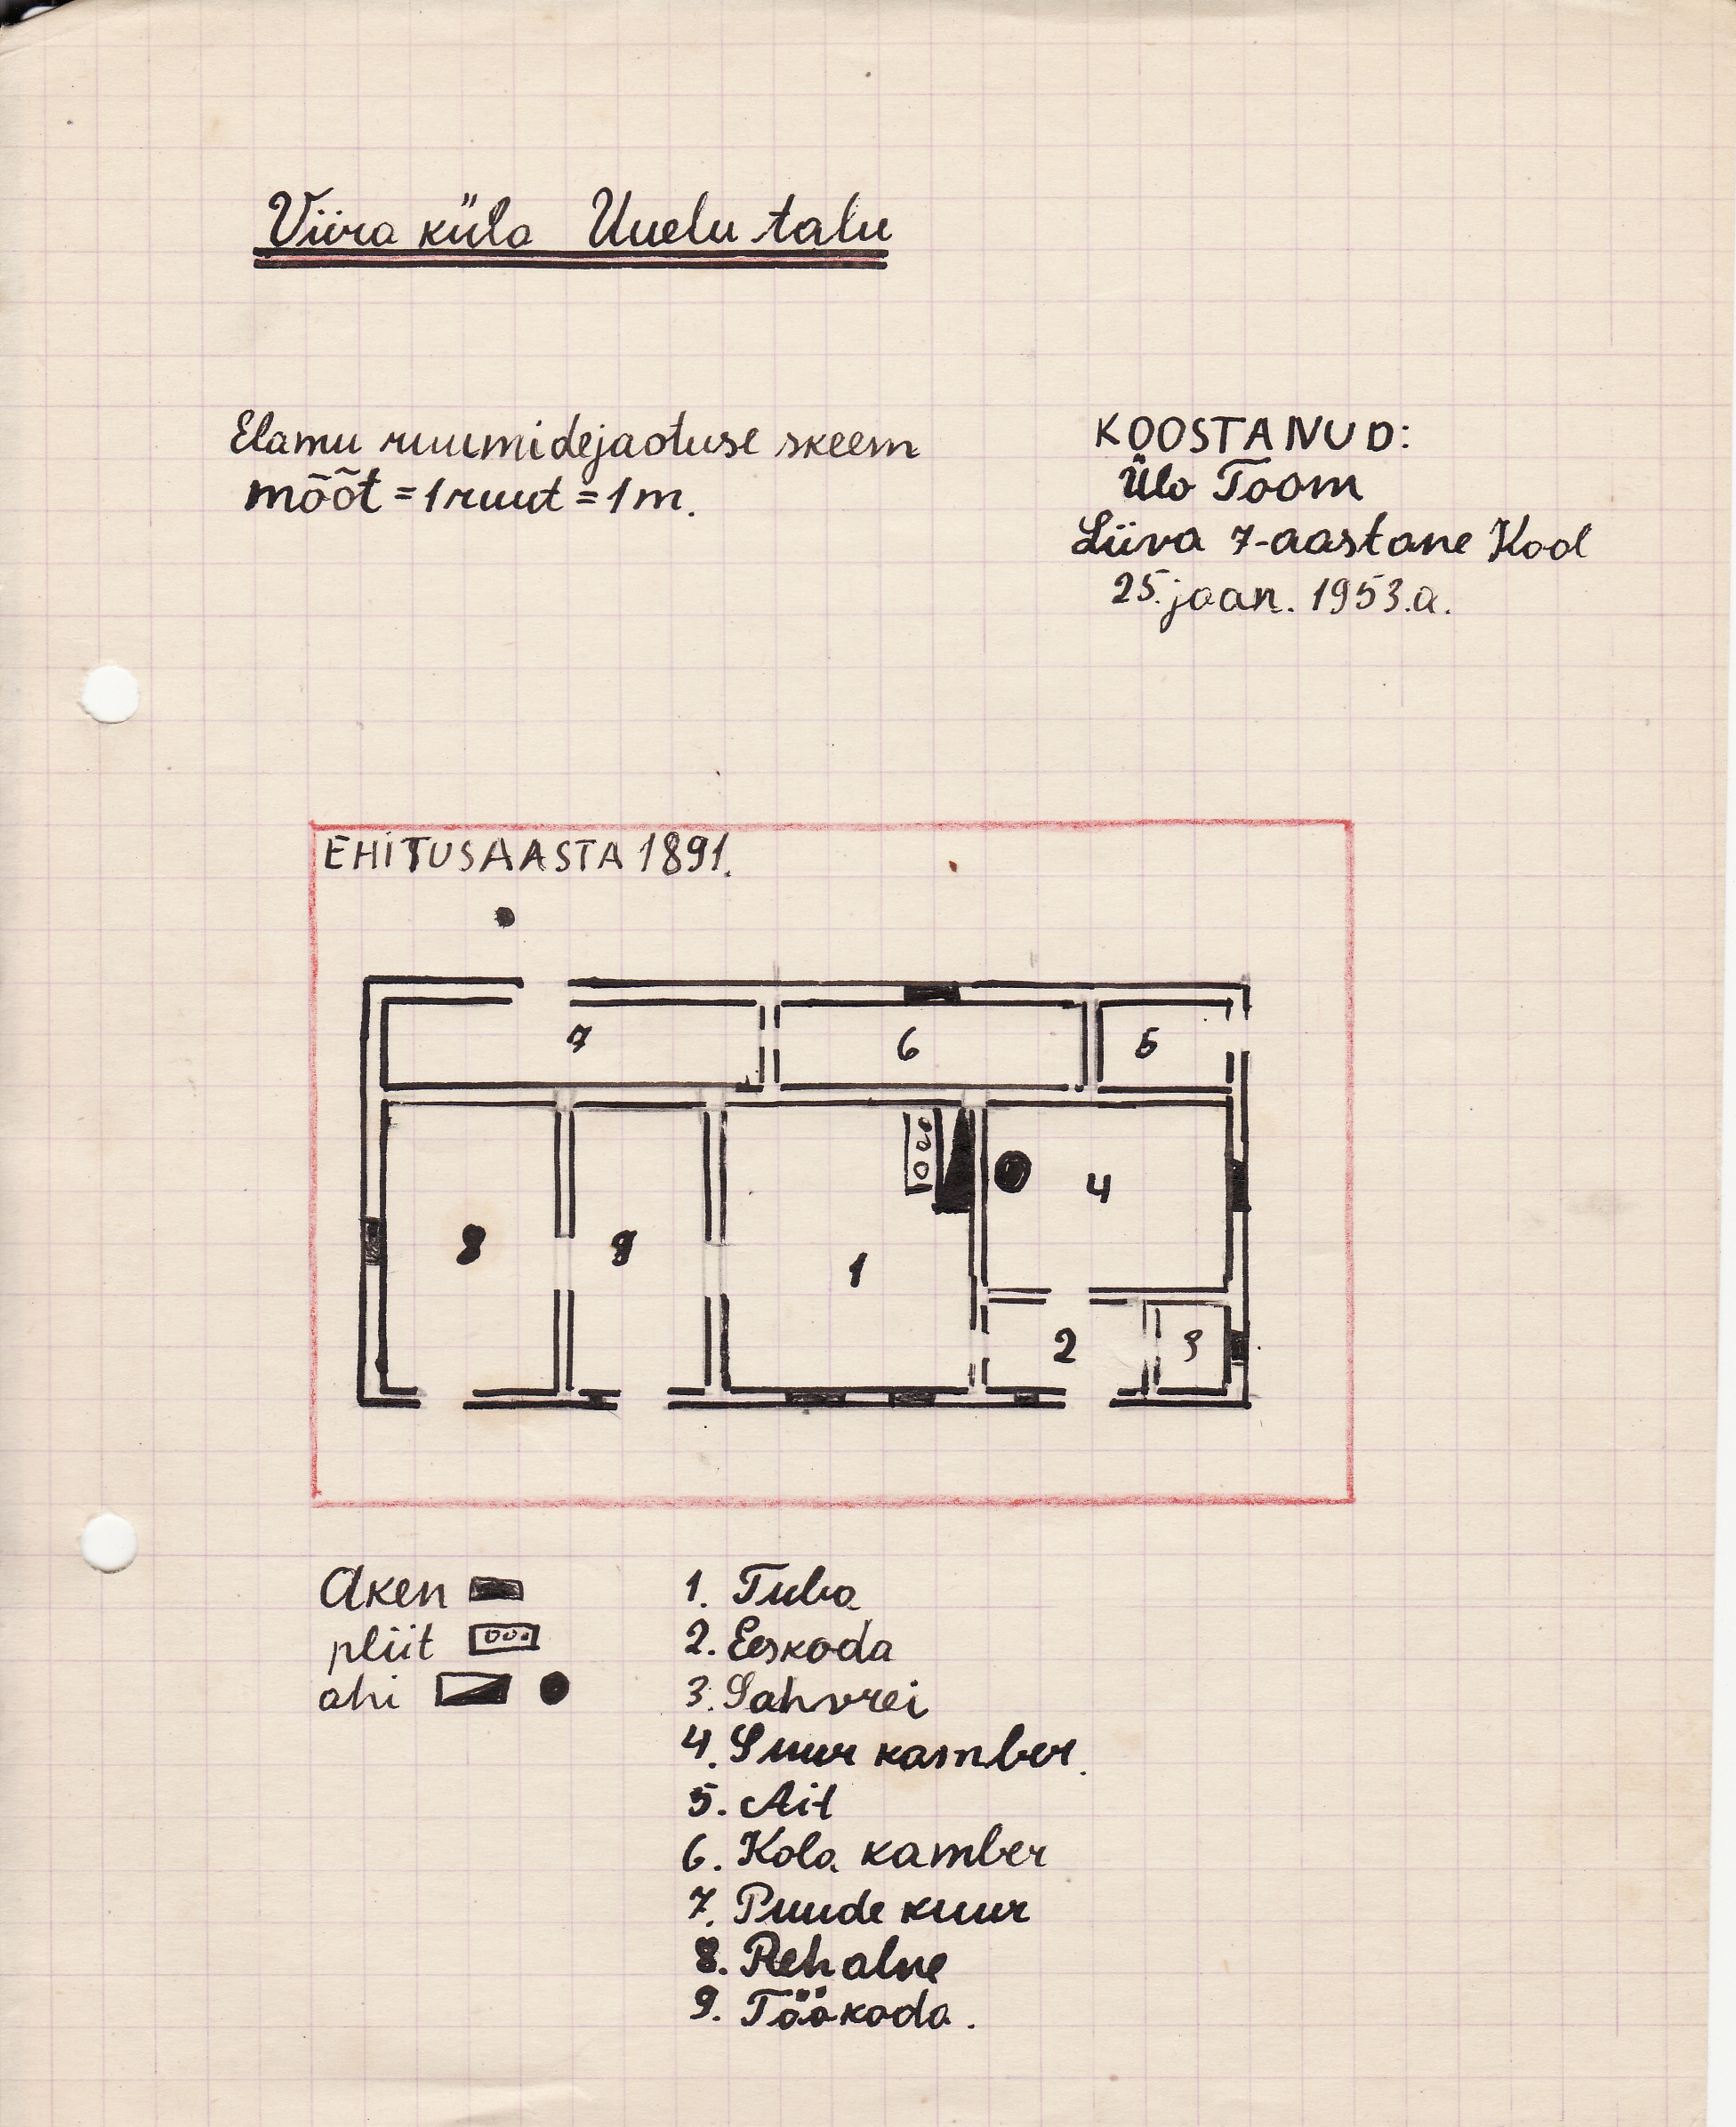 Viira küla Uuelu talu
Elamu ruumidejaotuse skeem
mõõt = 1 ruut = 1 m.
KOOSTANUD:
Ülo Toom
Liiva 7-aastane Kool
25. jaan. 1953.a.
EHITUSAASTA 1891.
7
6
5
8
9
1
4
2
3
Aken
pliit
ahi
1. Tuba
2. Eeskoda
3. Sahvrei
4. Suur kamber.
5. Ait
6. Kola kamber
7. Puude kuur
8. Rehalne
9. Töökoda.